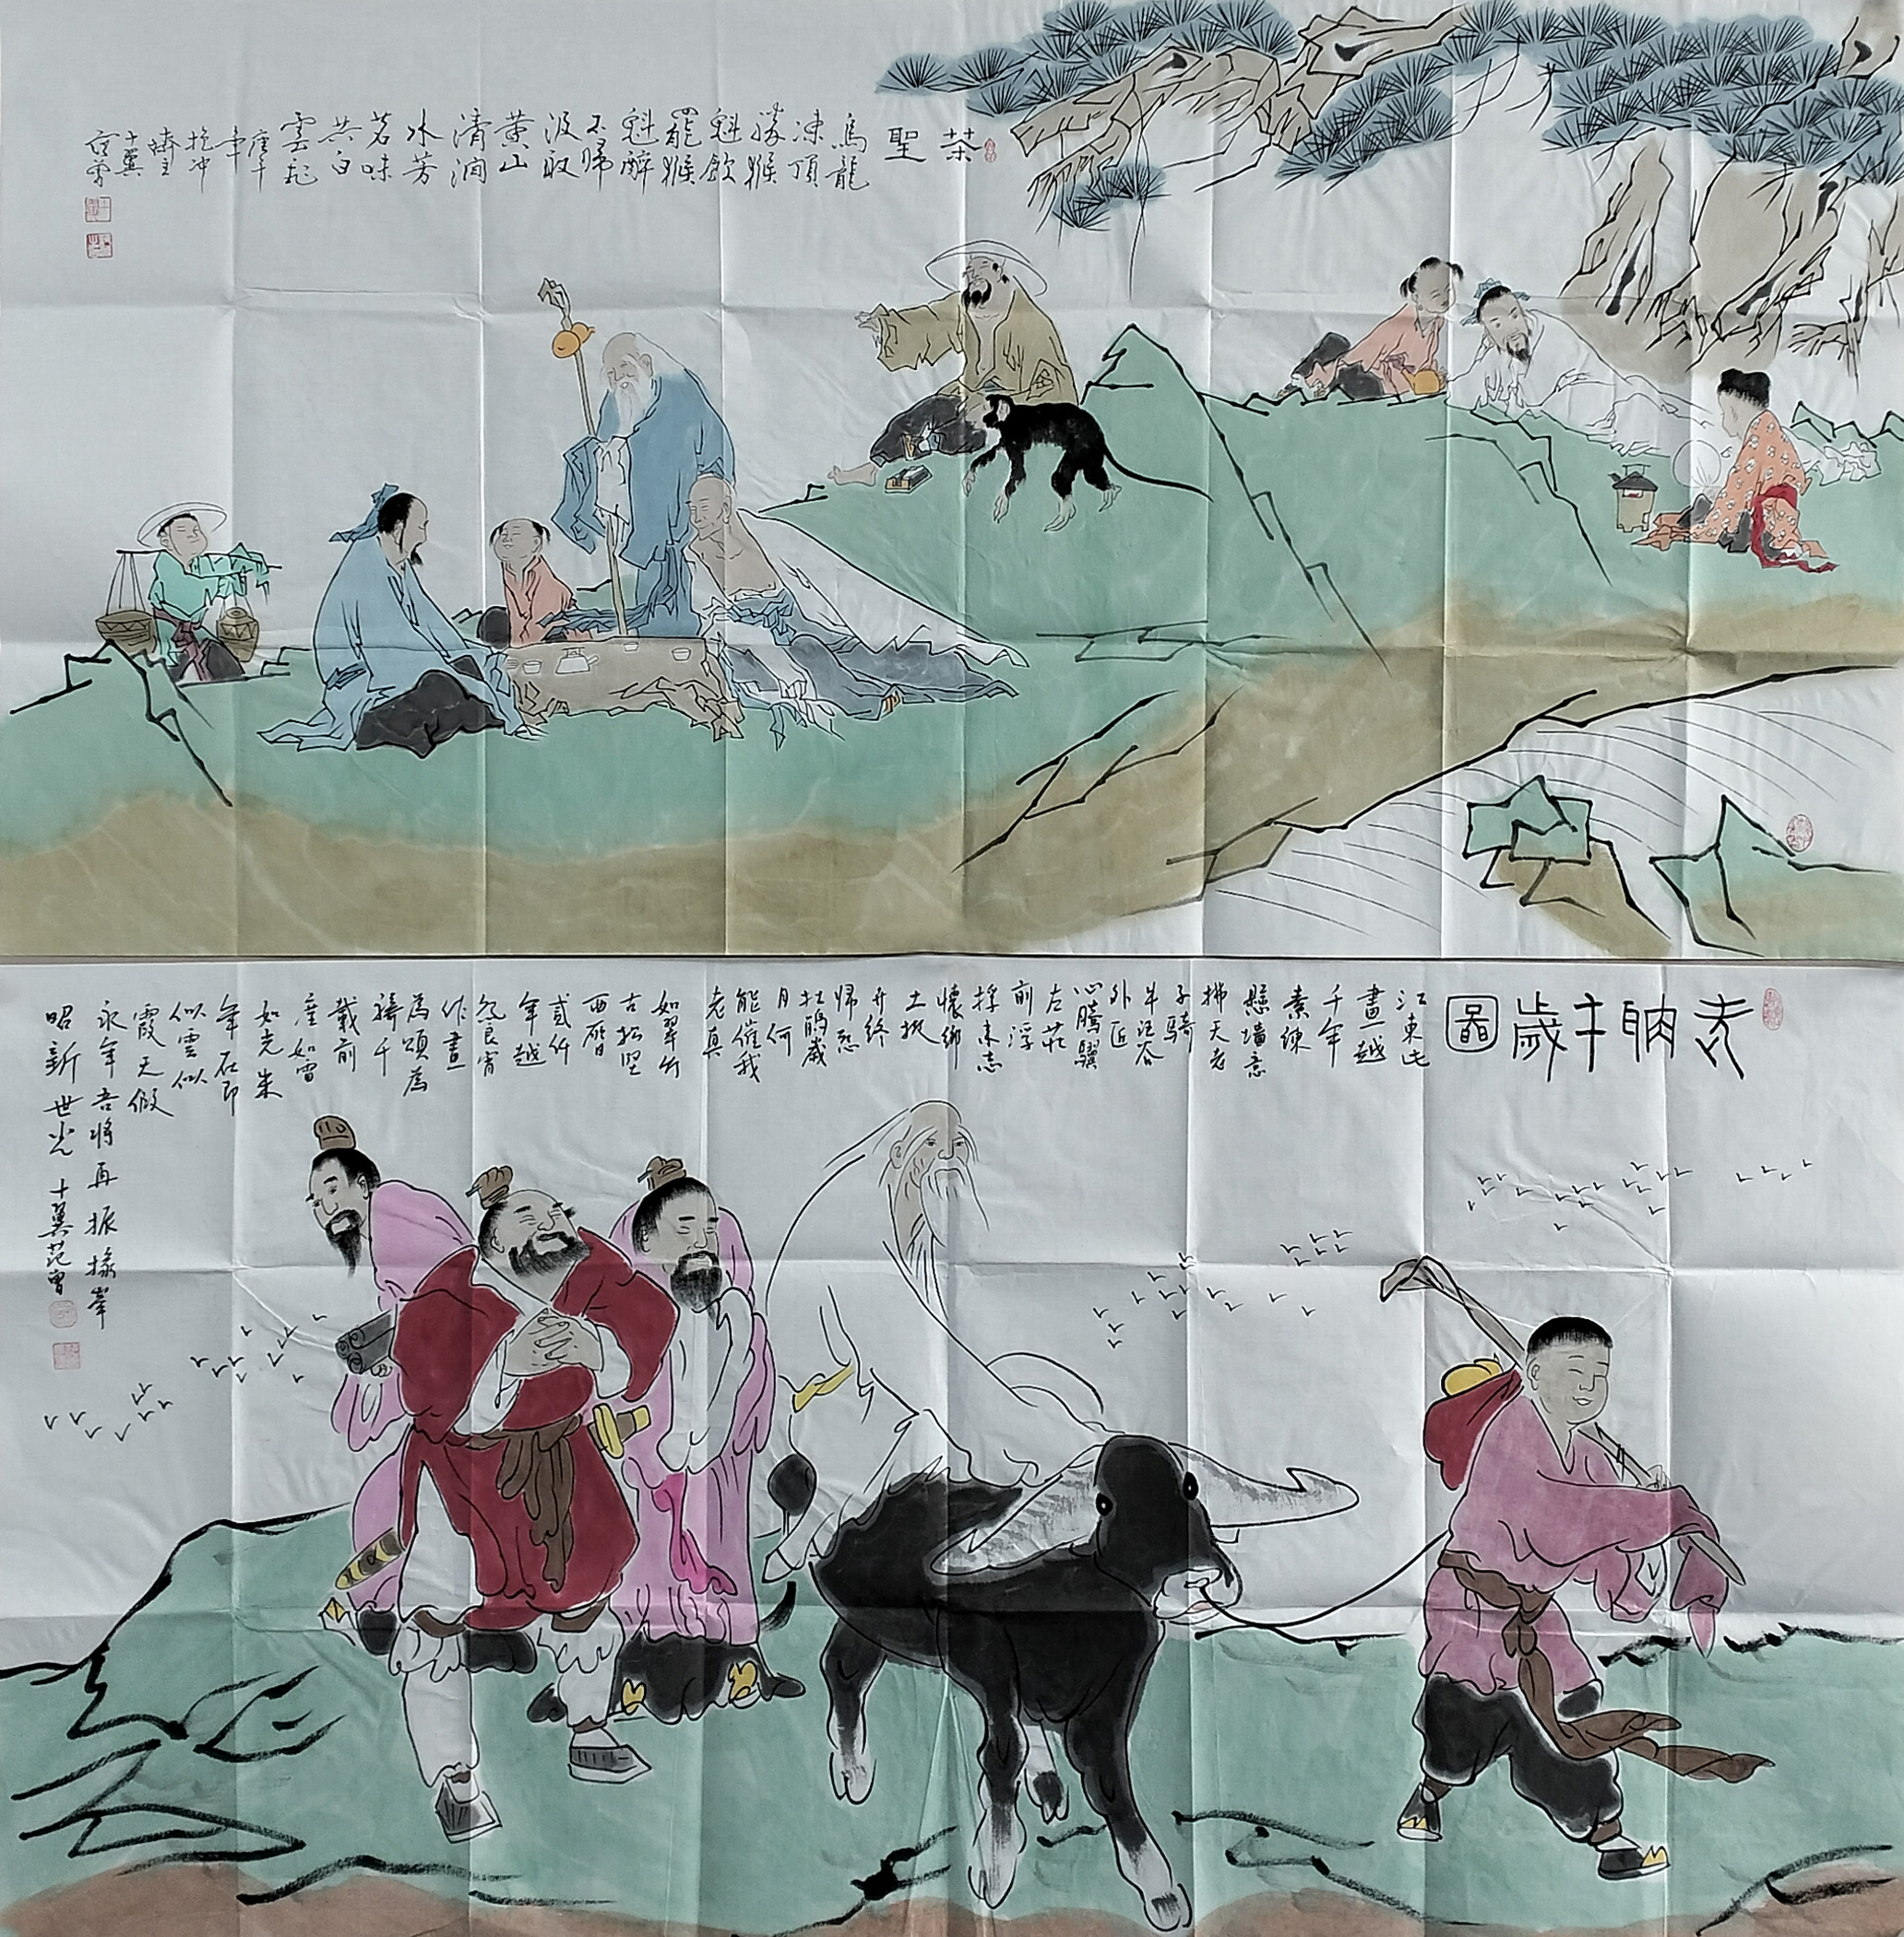 茶聖
烏龍
凍頂
勝猴
魁飲
罷猴
魁醉
不歸
汲取
黃山
清澗
水芳
茗味
共白
雲起
庚午
年
抱冲
齋主
十翼
范曾
老聃千歲圖
江東此
畫越
千年
素練
懸墻意
拂天老
子騎
牛
外匠
心騰驥
左莊
前浮
懷鄉
土
并終
歸怨
杜鵑歲
月何
能催我
老真
如翠竹
古松堅
西曆
貳仟
年越
良宵
作畫
為頌為
禱千
載前
塵如雷
如光來
年在即
似雲似
霞天假
永年吾將再振掾筆
昭新世光 十翼范曾